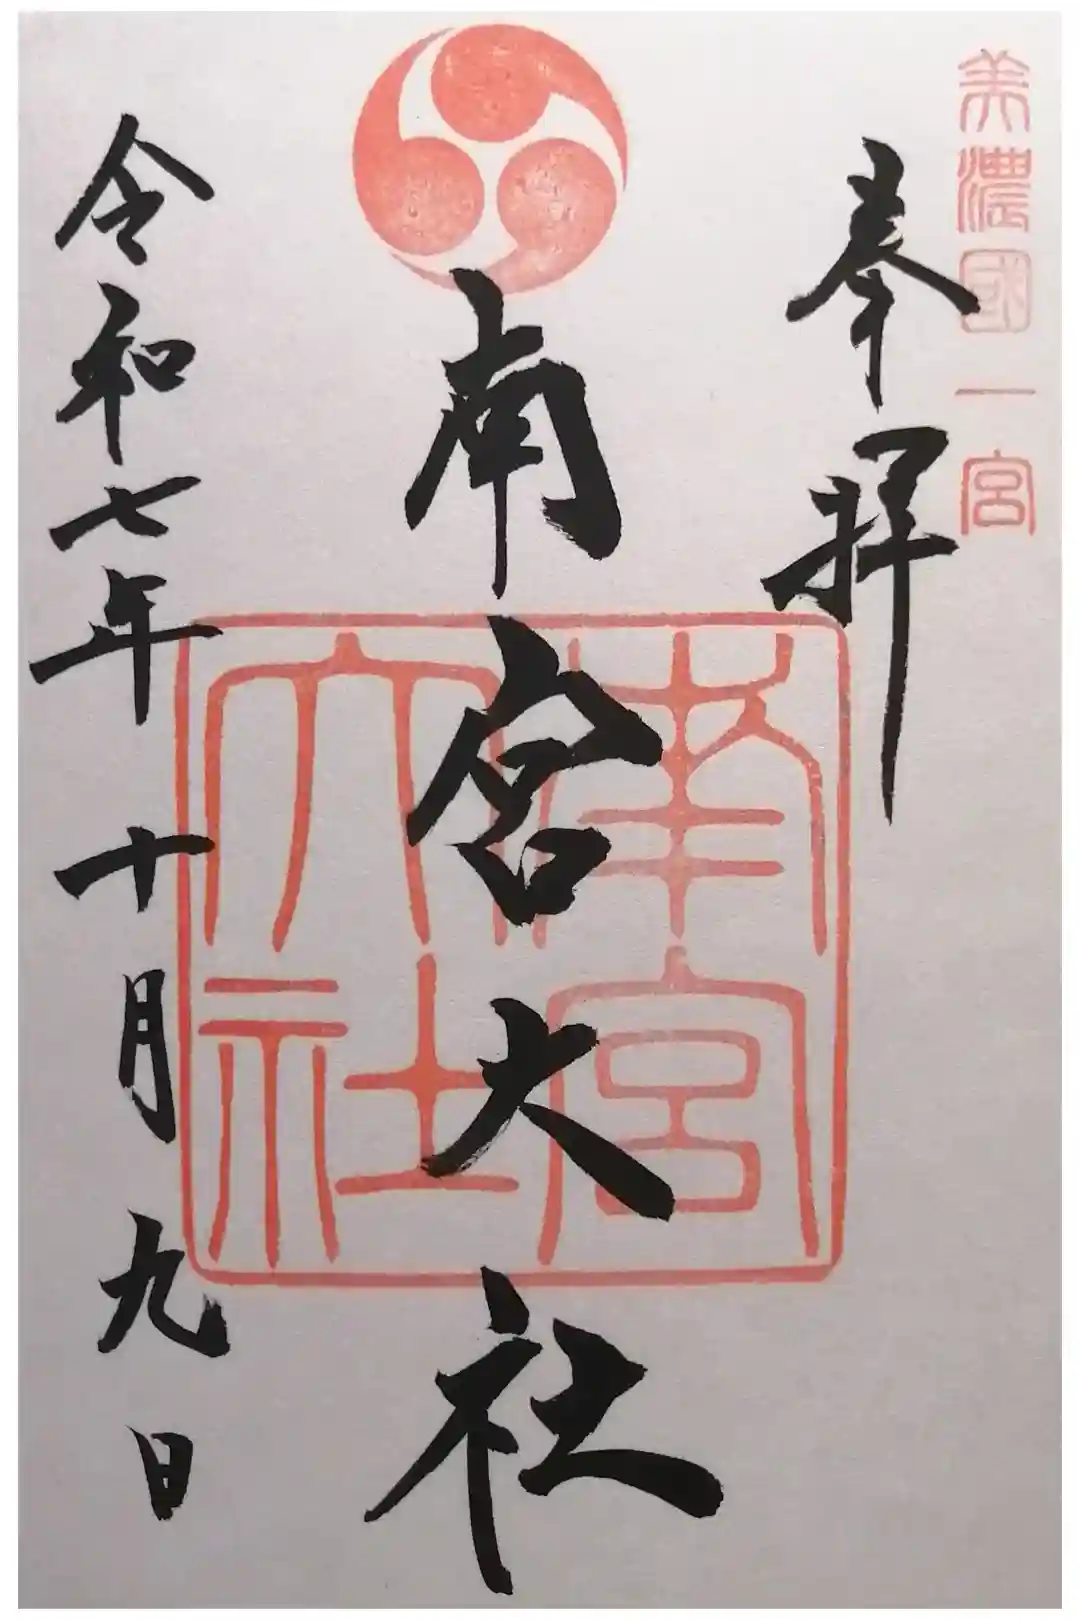 美濃國一宮
奉拝
南宮大社
南宮
大社
令和七年十月九日